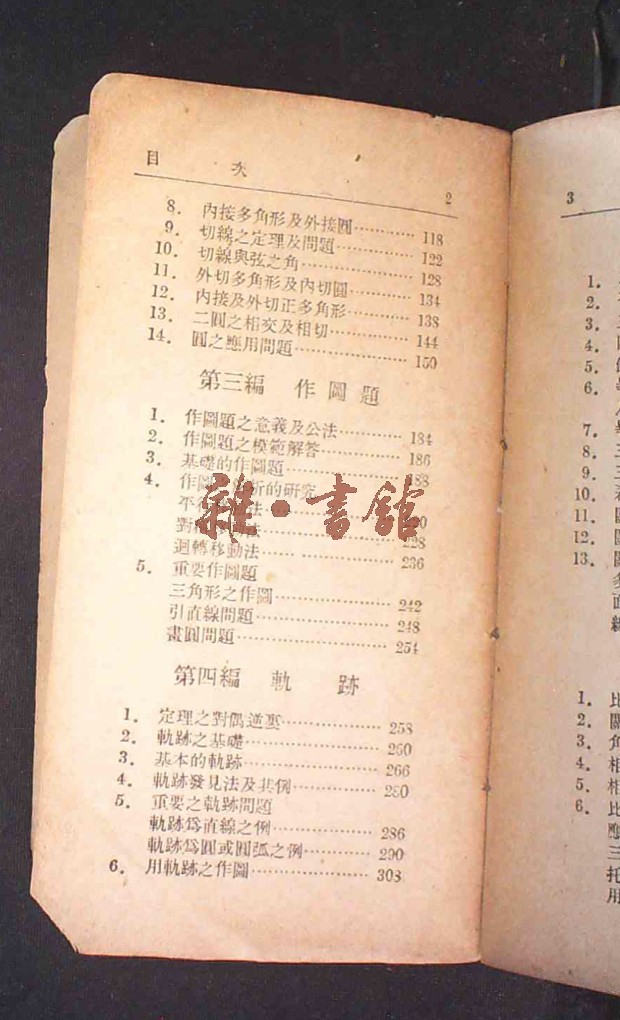 目 次 2
8. 內接多角形及外接圓 118
9. 切線之定理及問題 122
10. 切線與弦之角 128
11. 外切多角形及內切圓 134
12. 內接及外切正多角形 138
13. 二圓之相交及相切 144
14. 圓之應用問題 150
第三編 作圖題
1. 作圖題之意義及公法 184
2. 作圖題之模範解答 186
3. 基礎的作圖題 188
4. 作圖 析的研究
平 法
對 法 228
迴轉移動法 236
5. 重要作圖題
三角形之作圖 242
引直線問題 248
畫圓問題 254
第四編 軌跡
1. 定理之對偶逆裏 258
2. 軌跡之基礎 260
3. 基本的軌跡 266
4. 軌跡發見法及其例 280
5. 重要之軌跡問題
軌跡爲直線之例 286
軌跡爲圓或圓弧之例 290
6. 用軌跡之作圖 308
雜·書館
3
1.
2.
3.
4.
5.
6.
7.
8. 三
9.
10.
11.
12.
13.
1. 比
2. 關
3. 角
4. 相
5. 相
6. 比
應
三
托
用